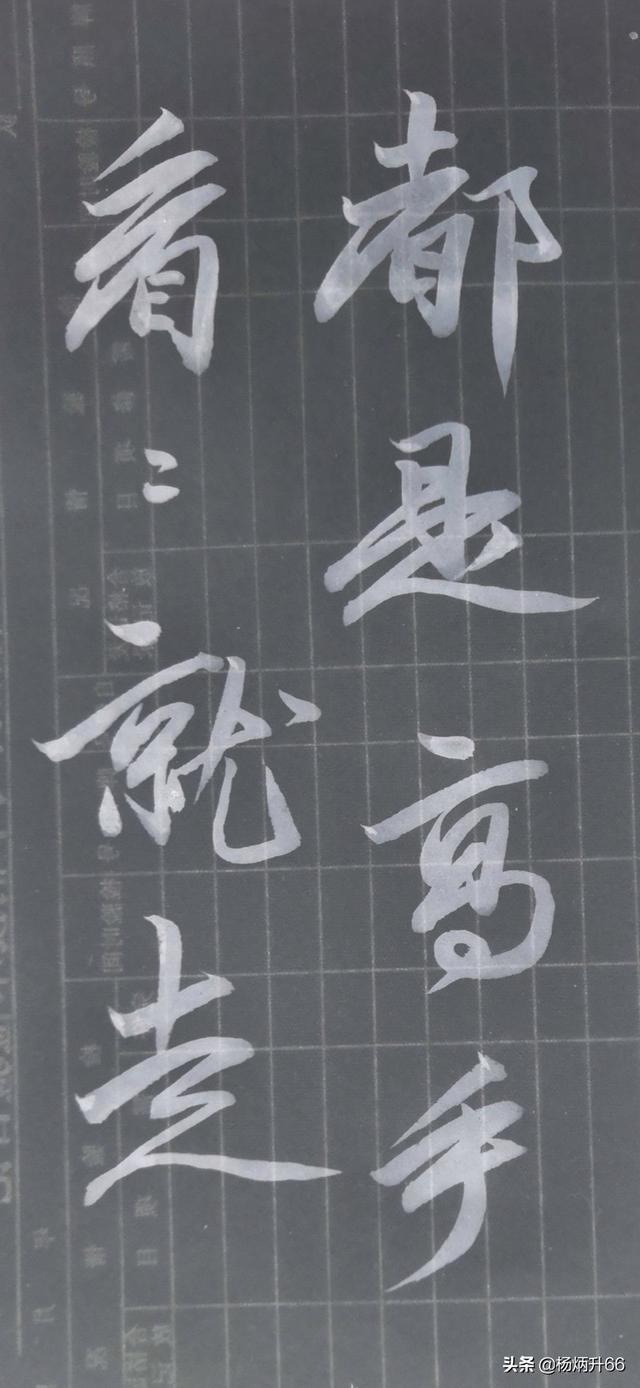 都是高手
看〻就走
头条 @杨炳升66